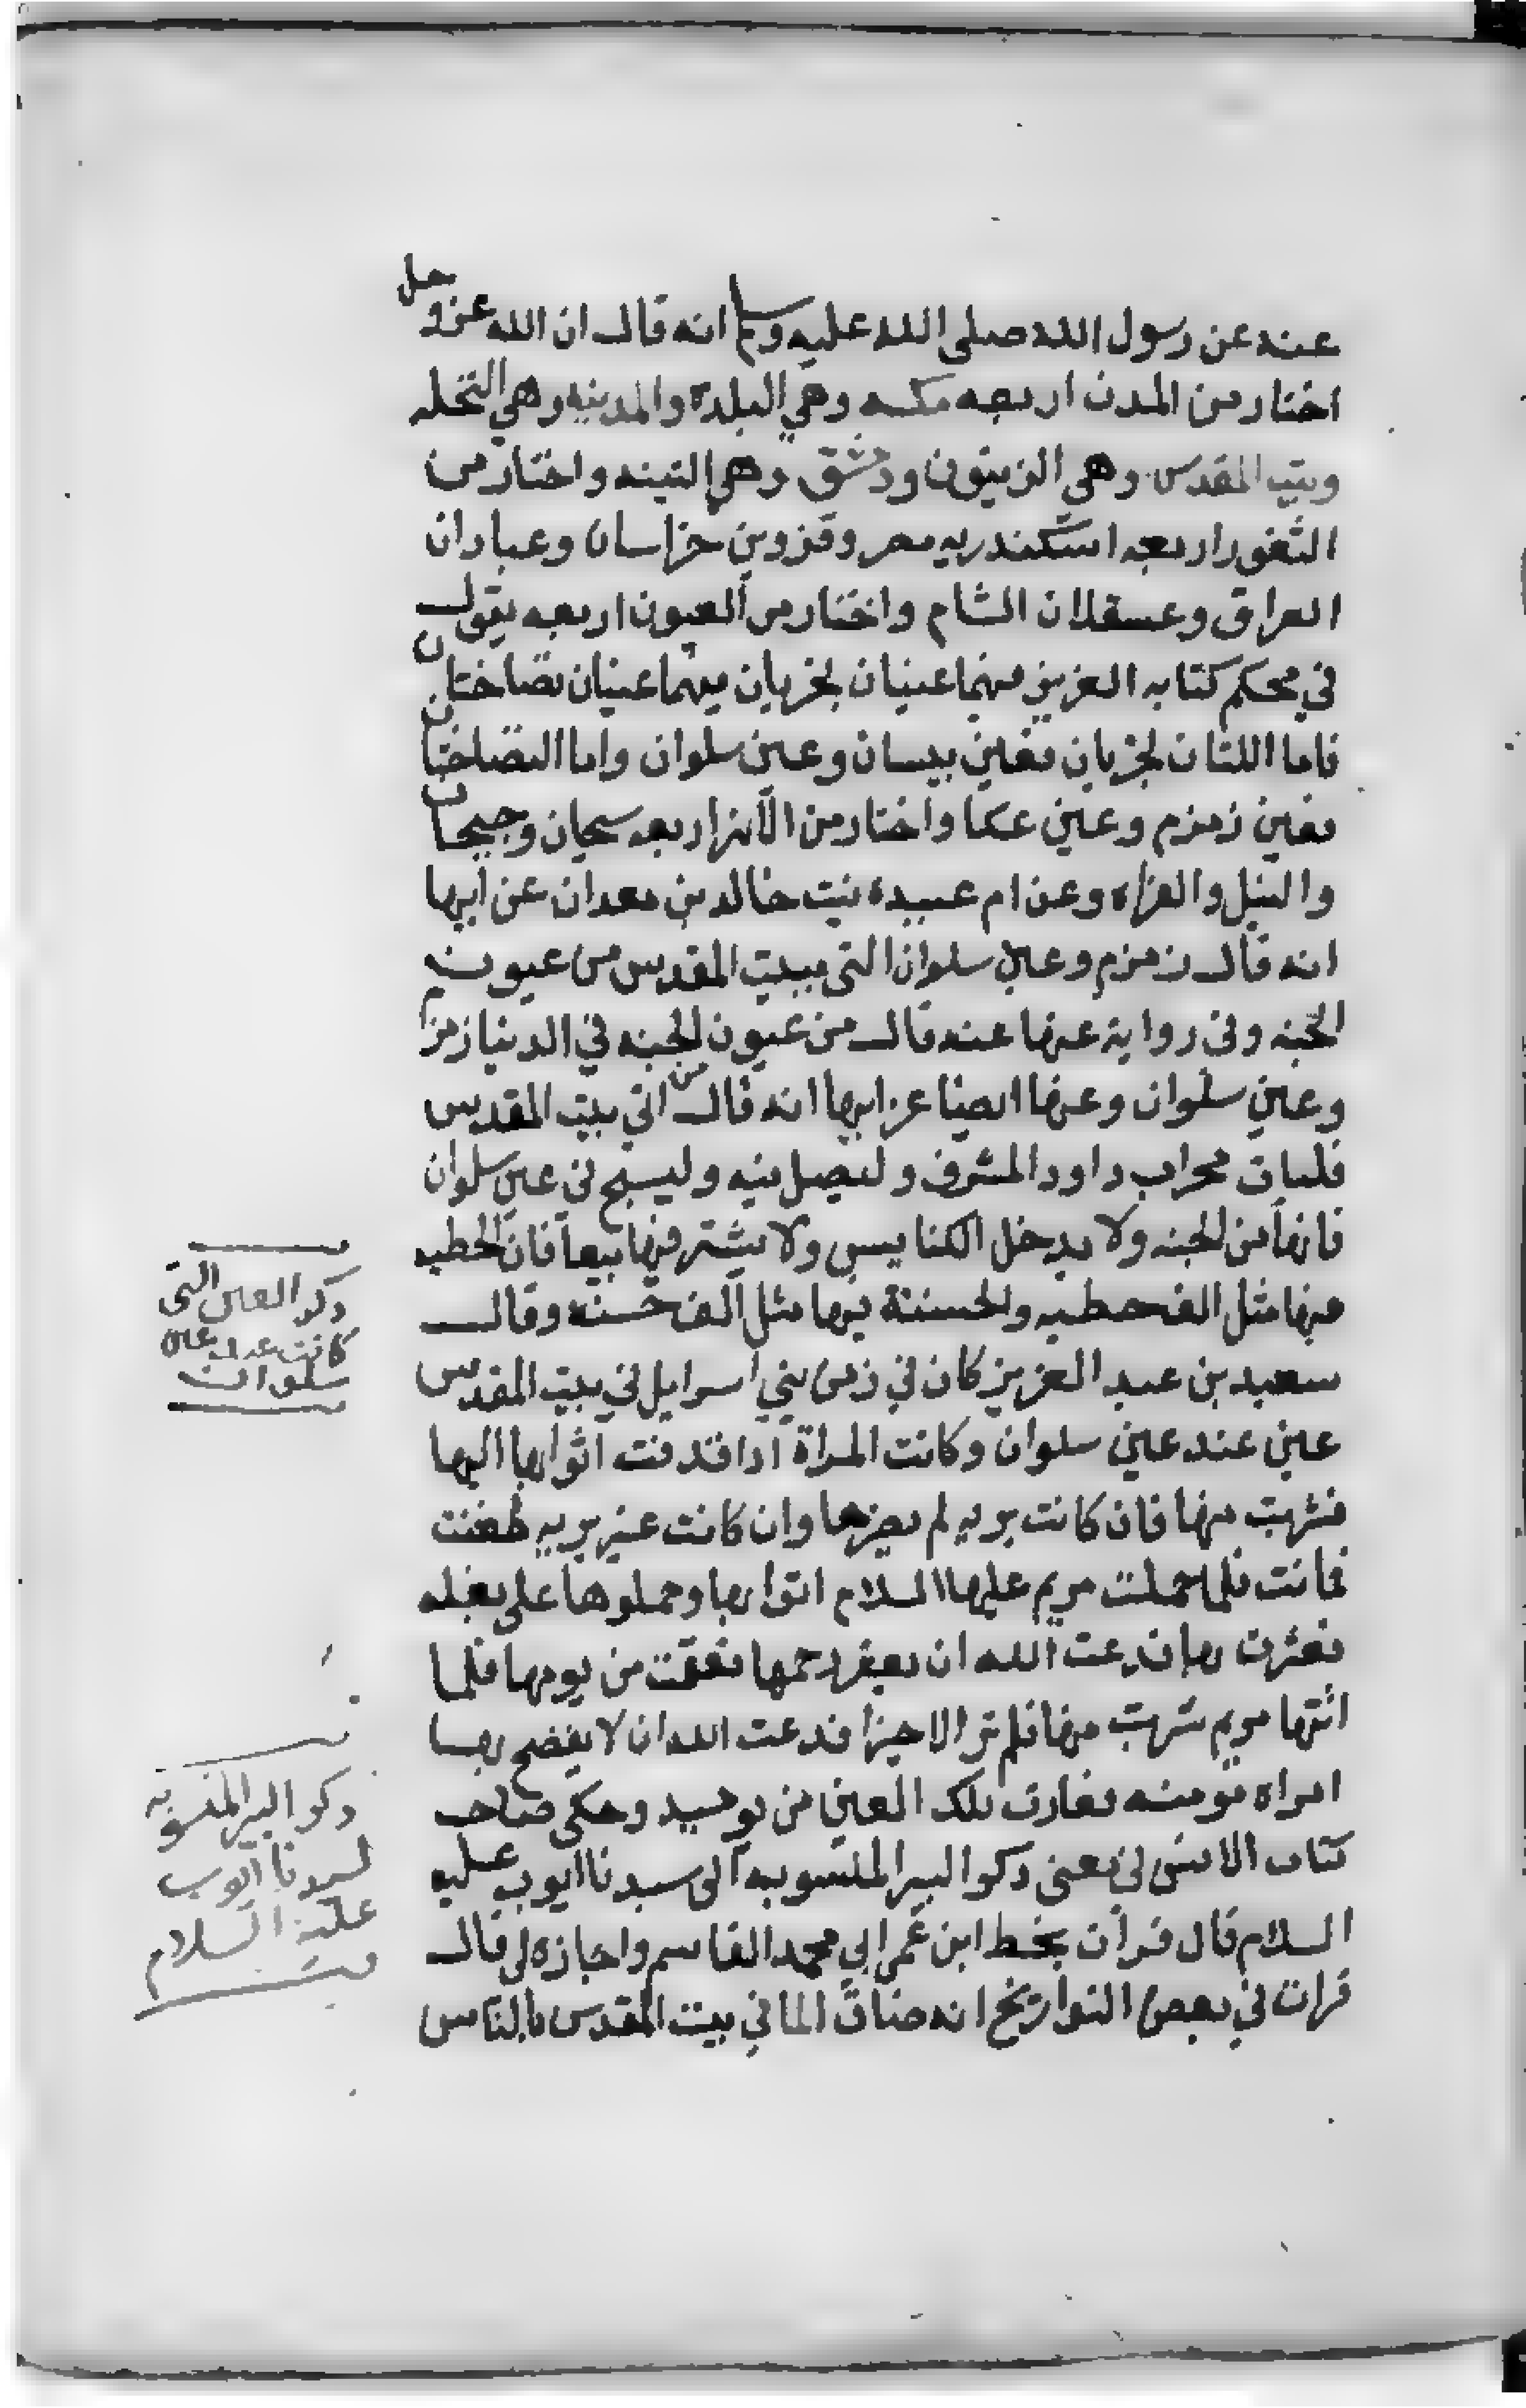 عنه عن رسول الله صلى الله عليه وسلم انه قال ان الله عز وجل
اختار من المدن اربعه مكه وهي البلدة والمدينه وهي النخله
وبيت المقدس وهي الزيتون ودمشق وهي التينه واختار من
الثغور اربعه اسكندريه مصر وقزوين خراسان وعبادان
العراق وعسقلان الشام واختار من العيون اربعه يقول
في محكم كتابه العزيز فيهما عينان تجريان فيهما عينان نضاختان
فاما اللتان تجريان فعين بيسان وعين سلوان واما النضاختان
فعين زمزم وعين عكا واختار من الانهر اربعه سيحان وجيحان
والنيل والفراه وعن ام عبيدة بنت خالد بن معدان عن ابيها
انه قال زمزم وعين سلوان التي ببيت المقدس من عيون
الجنه وفي رواية عنها عنه قال من عيون الجنه في الدنيا زمزم
وعين سلوان وعنها ايضا عن ابيها انه قال من اتي بيت المقدس
فليات محراب داود المشرف وليصل فيه وليسبح في عين سلوان
فانها من الجنه ولا يدخل الكنايس ولا يشتر فيها بيعا فان الخطيه
فيها مثل الف خطيه والحسنة فيها مثل الف حسنه وقال
سعيد بن عبد العزيز كان في زمن بني اسرايل في بيت المقدس
عين عند عين سلوان وكانت المراة اذا قذفت اتوا بها اليها
فشربت منها فان كانت بريه لم يضرها وان كانت غير بريه طعنت
فماتت فلما حملت مريم عليها السلام اتوا بها وحملوها على بغله
فعثرت بها فدعت الله ان يعقر رحمها فعقمت من يومها فلما
اتتها مريم شربت منها فلم تر الا خيرا فدعت الله ان لا يفضح بها
امراه مومنه فغارت تلك العين من يوميد وحكى صاحب
كتاب الانس في معنى ذكر البير المنسوبه الى سيدنا ايوب عليه
السلام قال قرات بخط ابن عمر ابي محمد القاسم واجازه لي قال
قرات في بعض التواريخ انه ضاق الما في بيت المقدس بالناس
ذكر العين التي
كانت عند عين
سلوان
ذكر البير المنسوبه
لسيدنا ايوب
عليه السلام